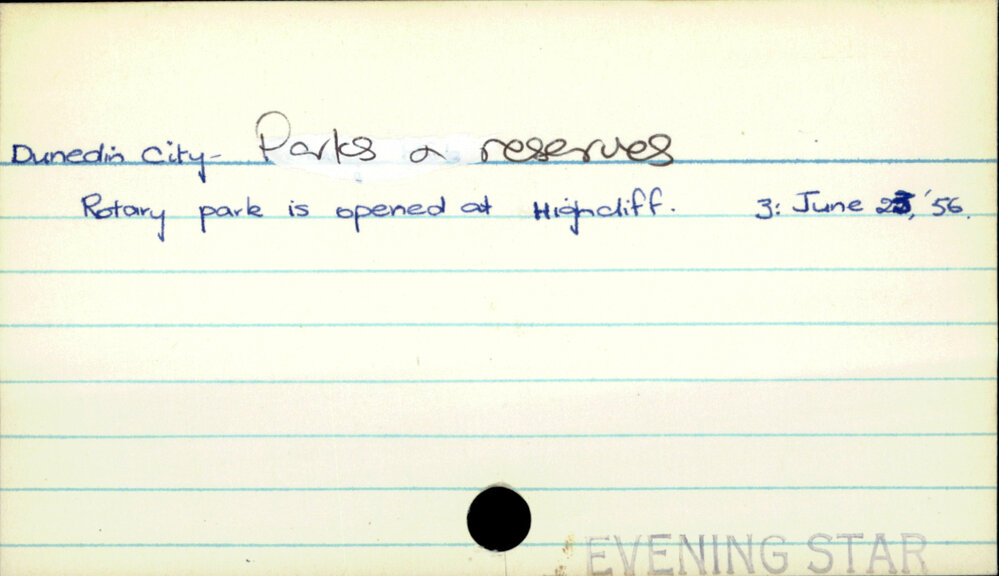 Dunedin City- Parks & reserves
Rotary park is opened at Highcliff. 3: June 23, '56.
EVENING STAR